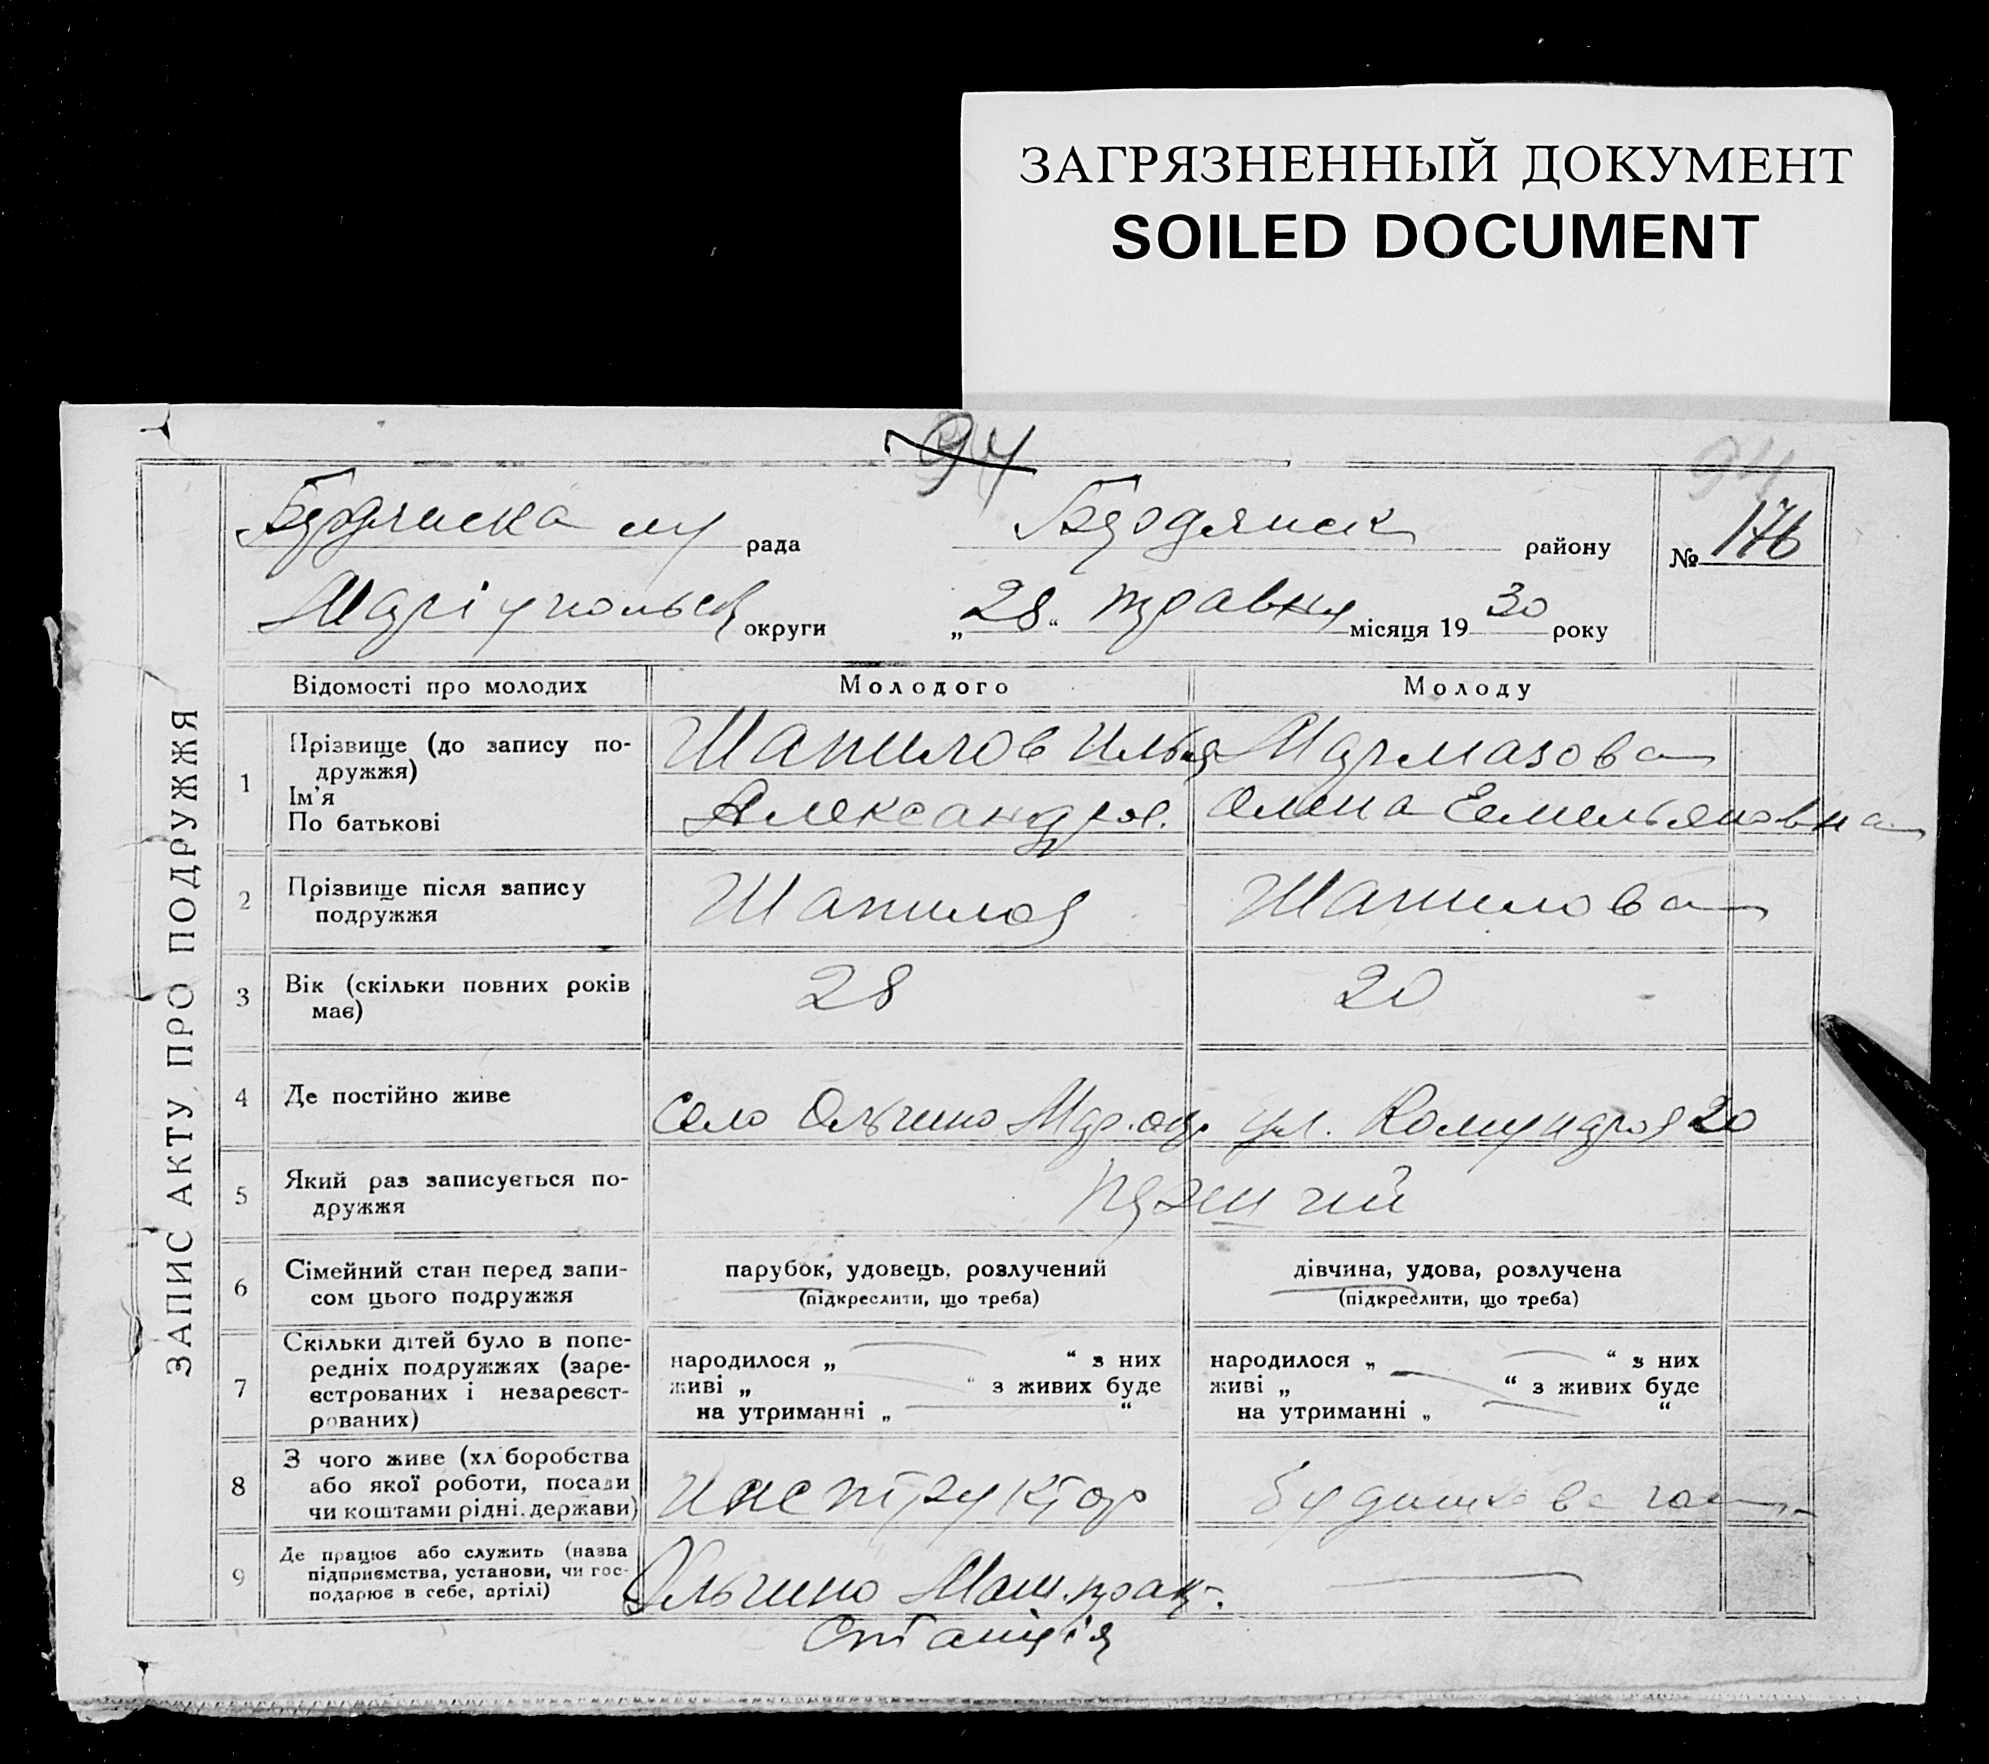 ЗАГРЯЗНЕННЫЙ ДОКУМЕНТ
SOILED DOCUMENT
94
94
Бердянска рада Бердянск району № 176
Маріупольск округи „28“ травня місяця 1930 року
ЗАПИС АКТУ ПРО ПОДРУЖЖЯ
Відомості про молодих Молодого Молоду
1 Прізвище (до запису подружжя) Ім'я По батькові
Шапилов Илья Мармазова
Александров. Олена Емельяновна
2 Прізвище після запису подружжя Шапилов Шапилова
3 Вік (скільки повних років має) 28 20
4 Де постійно живе Село Ольгино Мар. окр. ул. Комунаров 20
5 Який раз записується подружжя перший
6 Сімейний стан перед записом цього подружжя парубок, удовець, розлучений дівчина, удова, розлучена
(підкреслити, що треба) (підкреслити, що треба)
7 Скільки дітей було в попередніх подружжях (зареєстрованих і незареєстрованих)
народилося „ “ з них народилося „ “ з них
живі „ “ з живих буде живі „ “ з живих буде
на утриманні „ “ на утриманні „ “
8 З чого живе (хліборобства або якої роботи, посади чи коштами рідні, держави) инструктор
9 Де працює або служить (назва підприємства, установи, чи господарює в себе, артілі) Ольгино Маш. трак.
Станція